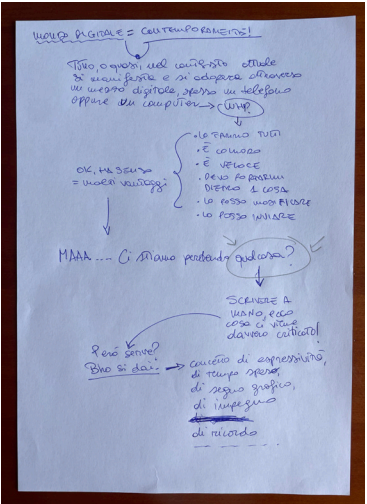 MONDO DIGITALE = CONTEMPORANEITÀ!
Tutto, o quasi, nel contesto attuale
si manifesta e si adopera attraverso
un mezzo digitale, spesso un telefono
oppure un computer → WHY?
• LO FANNO TUTTI
• È COMODO
• È VELOCE
• DEVO PORTARMI
DIETRO 1 COSA
• LO POSSO MODIFICARE
• LO POSSO INVIARE
OK, HA SENSO
= molti vantaggi
MAAA .... Ci stiamo perdendo qualcosa?
SCRIVERE A
MANO, ecco
cosa ci viene
davvero criticato!
Però serve?
Bho si dai: → concetto di espressività,
di tempo speso,
di segno grafico,
di impegno
di ricordo